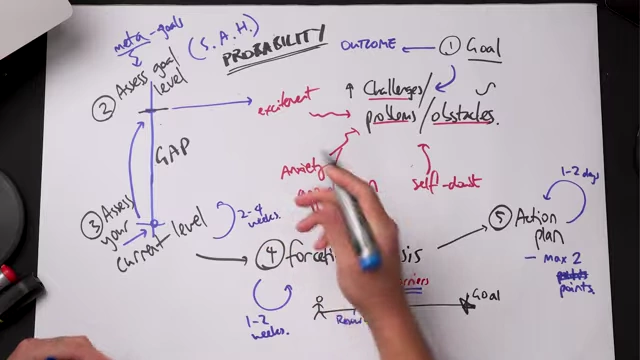 meta-goals
(S.A.H.)
PROBABILITY
OUTCOME
① Goal
② Assess goal
level
excitement
↑ Challenges/
problems/obstacles.
GAP
Anxiety
self-doubt
③ Assess
your
current level
2-4
weeks.
④
1-2
weeks.
Goal
⑤ Action
plan
1-2 days
- max 2
points.